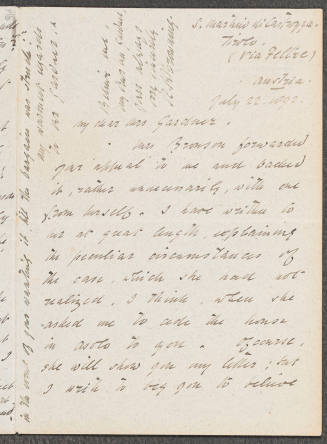 S. Martino di Castrozza
Tirolo
(via Feltre)
Austria.
July 22. 1892.
My dear Mrs. Gardner.
Mrs Bronson forwarded
your appeal to me and backed
it, rather unnecessarily, with one
from herself. I have written to
her at great length, explaining
the peculiar circumstances of
the case, which she had not
realized, I think, when she
asked me to cede the house
in Asolo to you. Of course,
she will show you my letter; but
I wish to beg you to believe
in the event of your wanting it. All the bargain was struck:
my warmest regards
to Mr Gardner &
Believe me
my dear Mrs Gardner
yours always